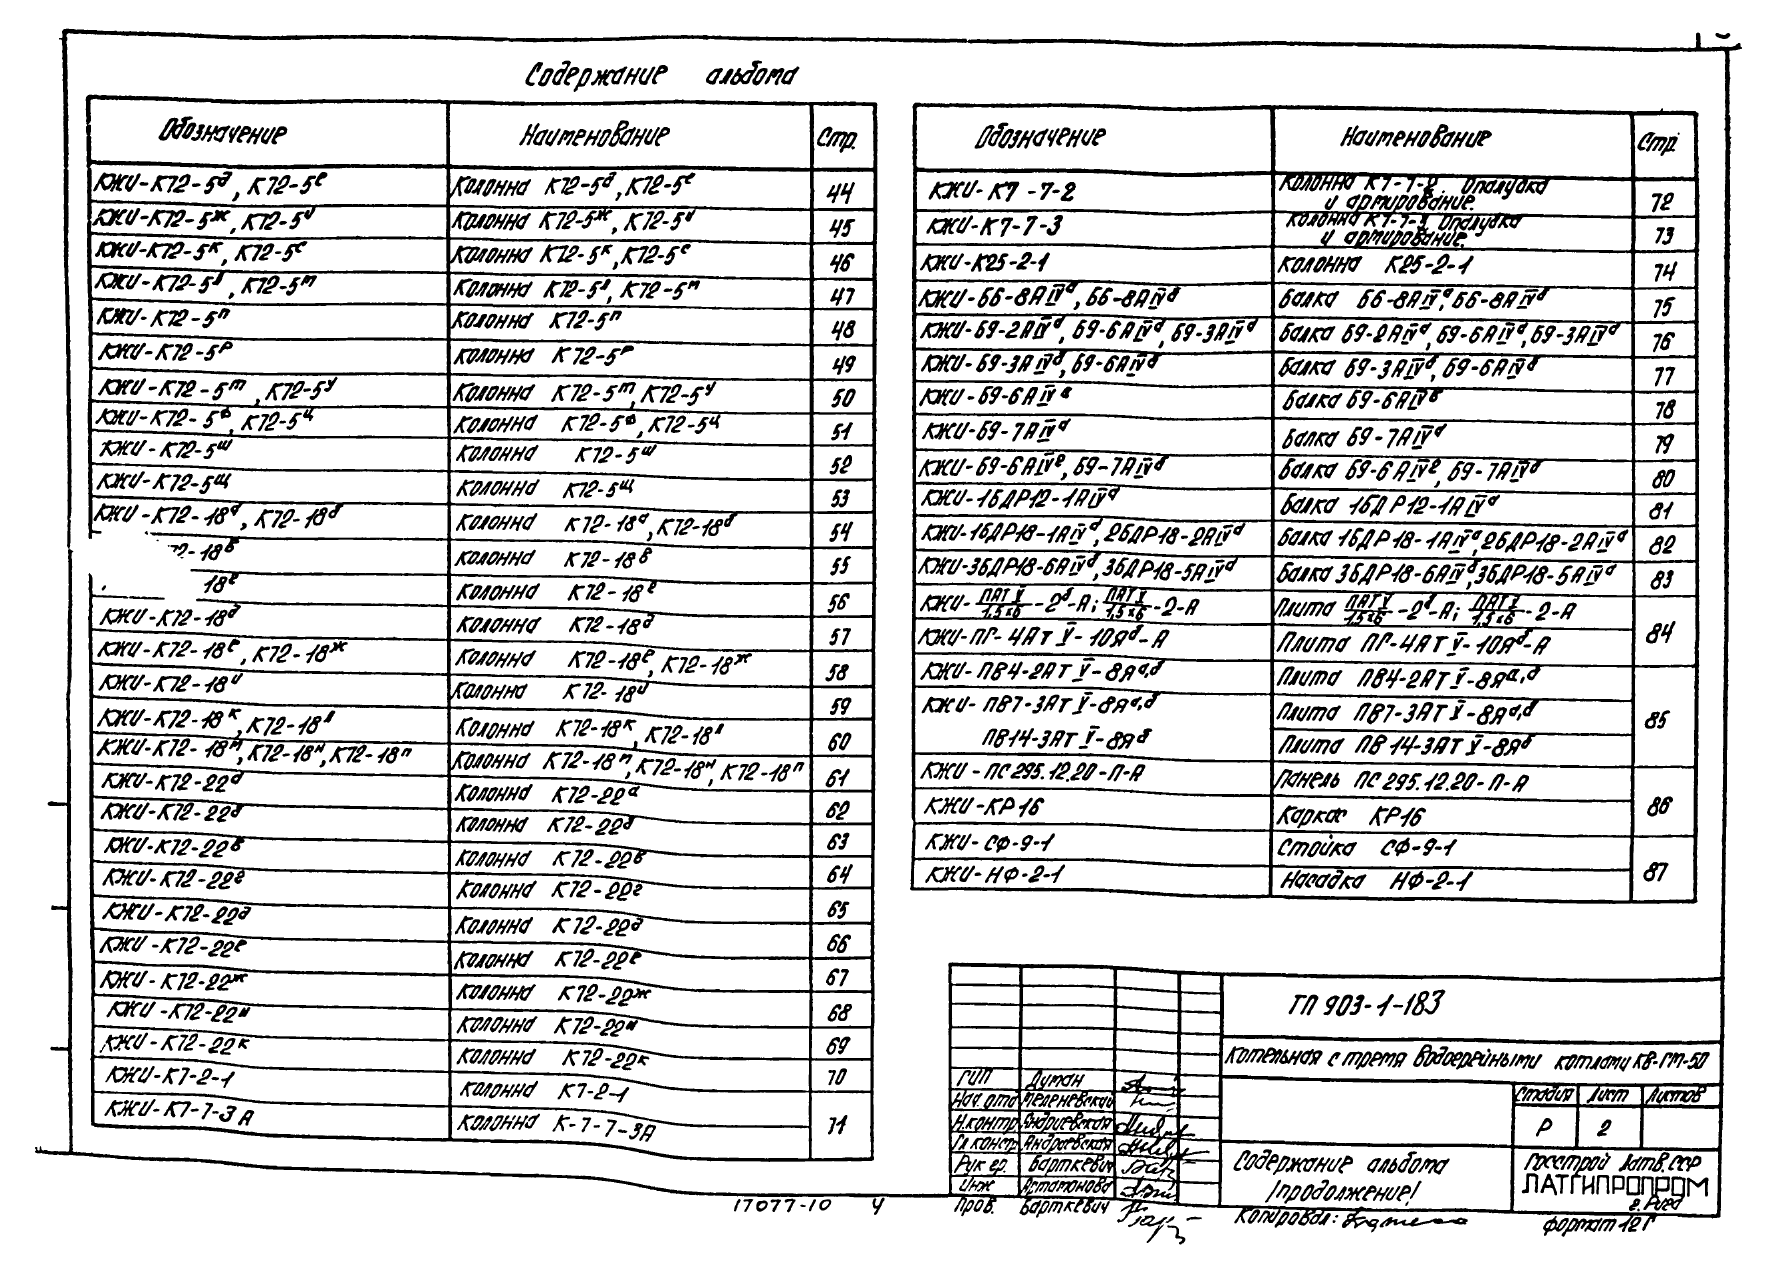 Содержание альбома
Обозначение Наименование Стр.
КЖИ-К72-5д, К72-5е Колонна К72-5д, К72-5е 44
КЖИ-К72-5ж, К72-5и Колонна К72-5ж, К72-5и 45
КЖИ-К72-5к, К72-5с Колонна К72-5к, К72-5с 46
КЖИ-К72-5л, К72-5т Колонна К72-5л, К72-5т 47
КЖИ-К72-5п Колонна К72-5п 48
КЖИ-К72-5р Колонна К72-5р 49
КЖИ-К72-5т, К72-5у Колонна К72-5т, К72-5у 50
КЖИ-К72-5ф, К72-5ц Колонна К72-5ф, К72-5ц 51
КЖИ-К72-5ш Колонна К72-5ш 52
КЖИ-К72-5щ Колонна К72-5щ 53
КЖИ-К72-18а, К72-18б Колонна К72-18а, К72-18б 54
72-18в Колонна К72-18в 55
18г Колонна К72-18г 56
КЖИ-К72-18д Колонна К72-18д 57
КЖИ-К72-18е, К72-18ж Колонна К72-18е, К72-18ж 58
КЖИ-К72-18и Колонна К72-18и 59
КЖИ-К72-18к, К72-18л Колонна К72-18к, К72-18л 60
КЖИ-К72-18м, К72-18н, К72-18п Колонна К72-18м, К72-18н, К72-18п 61
КЖИ-К72-22а Колонна К72-22а 62
КЖИ-К72-22б Колонна К72-22б 63
КЖИ-К72-22в Колонна К72-22в 64
КЖИ-К72-22г Колонна К72-22г 65
КЖИ-К72-22д Колонна К72-22д 66
КЖИ-К72-22е Колонна К72-22е 67
КЖИ-К72-22ж Колонна К72-22ж 68
КЖИ-К72-22и Колонна К72-22и 69
КЖИ-К72-22к Колонна К72-22к 70
КЖИ-К7-2-1 Колонна К7-2-1 71
КЖИ-К7-7-3А Колонна К-7-7-3А
Обозначение Наименование Стр.
КЖИ-К7-7-2 Колонна К7-7-2. Опалубка
и армирование. 72
КЖИ-К7-7-3 Колонна К7-7- Опалубка
и армирование. 73
КЖИ-К25-2-1 Колонна К25-2-1 74
КЖИ-Б6-8АIVа, Б6-8АIVб Балка Б6-8АIVа, Б6-8АIVб 75
КЖИ-Б9-2АIVа, Б9-6АIVа, Б9-3АIVа Балка Б9-2АIVа, Б9-6АIVа, Б9-3АIVа 76
КЖИ-Б9-3АIVб, Б9-6АIVб Балка Б9-3АIVб, Б9-6АIVб 77
КЖИ-Б9-6АIVв Балка Б9-6АIVв 78
КЖИ-Б9-7АIVа Балка Б9-7АIVа 79
КЖИ-Б9-6АIVг, Б9-7АIVб Балка Б9-6АIVг, Б9-7АIVб 80
КЖИ-1БДР12-1АIVа Балка 1БДР12-1АIVа 81
КЖИ-1БДР18-1АIVа, 2БДР18-2АIVа Балка 1БДР18-1АIVа, 2БДР18-2АIVа 82
КЖИ-3БДР18-6АIVа, 3БДР18-5АIVа Балка 3БДР18-6АIVа, 3БДР18-5АIVа 83
КЖИ-ПАТV/1,5х6-2б-А; ПАТV/1,5х6-2-А Плита ПАТV/1,5х6-2б-А; ПАТV/1,5х6-2-А 84
КЖИ-ПГ-4АТV-10Яб-А Плита ПГ-4АТV-10Яб-А
КЖИ-ПВ4-2АТV-8Яа,б Плита ПВ4-2АТV-8Яа,б 85
КЖИ-ПВ7-3АТV-8Яа,б Плита ПВ7-3АТV-8Яа,б
ПВ14-3АТV-8Яб Плита ПВ14-3АТV-8Яб
КЖИ-ПС295.12.20-П-А Панель ПС295.12.20-П-А 86
КЖИ-КР16 Каркас КР16
КЖИ-СФ-9-1 Стойка СФ-9-1 87
КЖИ-НФ-2-1 Насадка НФ-2-1
ТП 903-1-183
Котельная с тремя водогрейными котлами КВ-ГМ-50
ГИП Думан
Нач. отд Меленевский
Н.контр Андриевская
Гл.констр Андриевская
Рук гр. Барткевич
Инж Астаманова
Пров. Барткевич
Стадия Лист Листов
Р 2
Содержание альбома
/продолжение/
Госстрой Латв.ССР
ЛАТГИПРОПРОМ
г. Рига
17077-10 4
Копировал:
формат 12Г